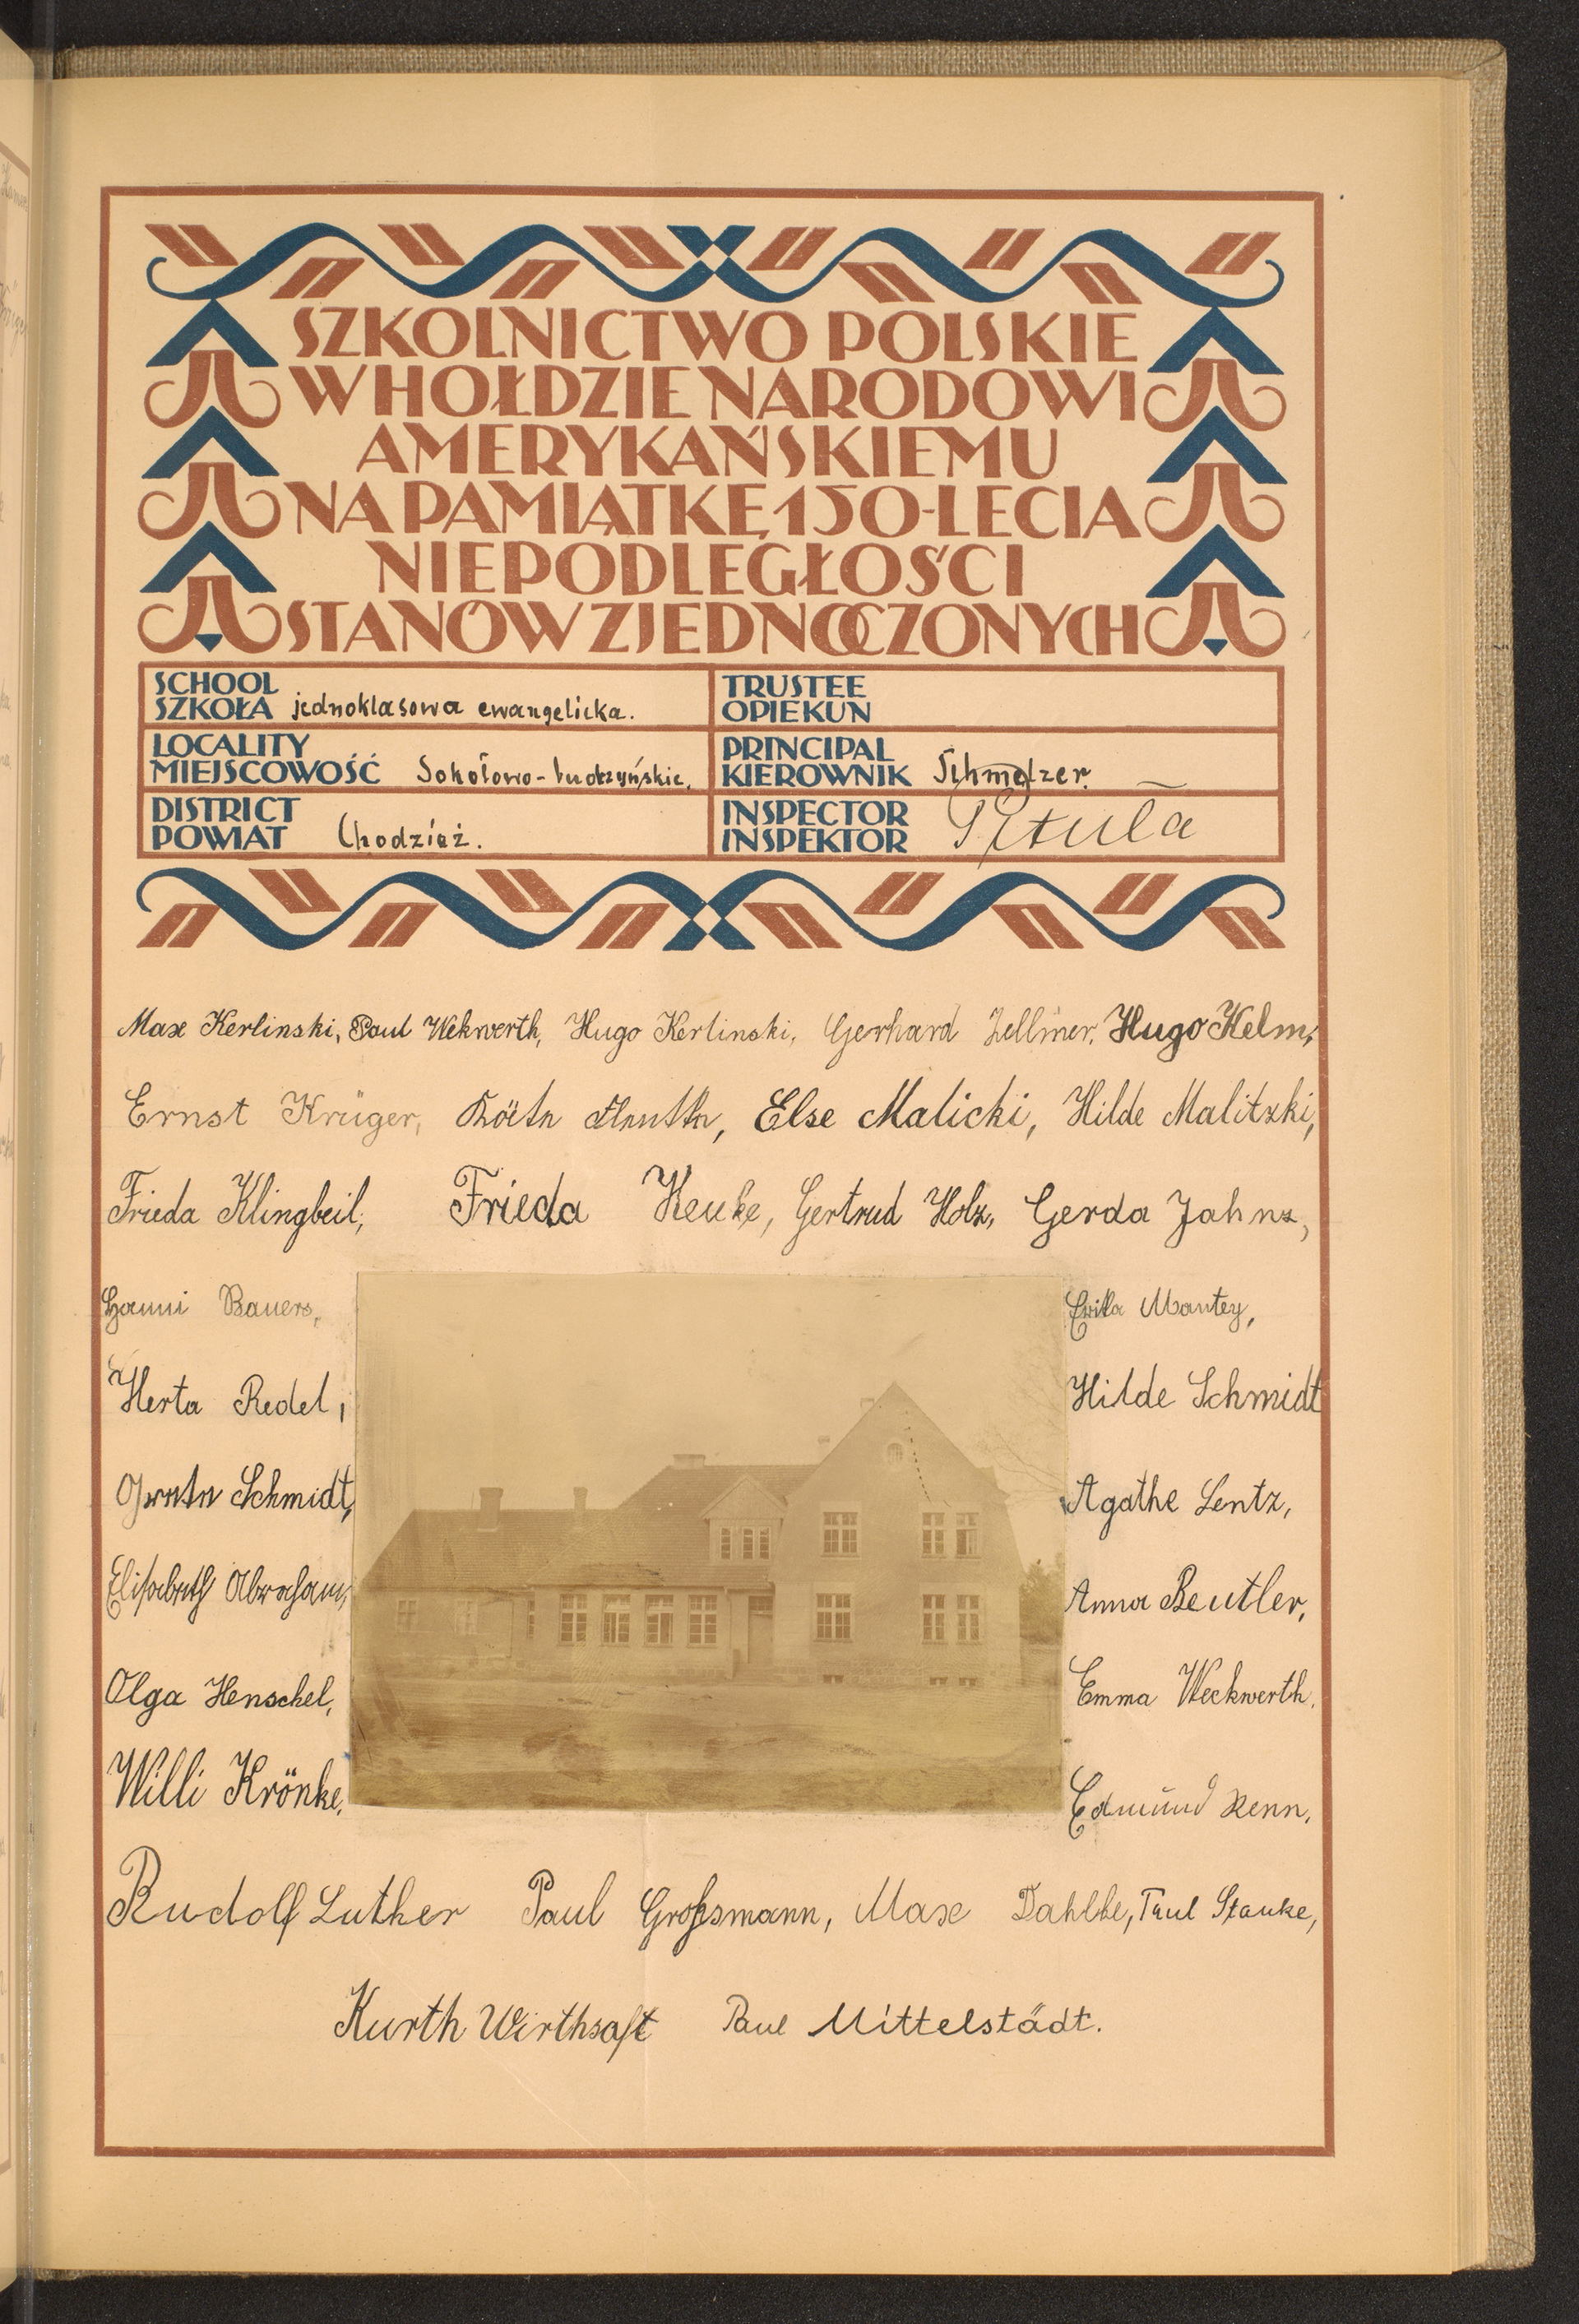 SZKOLNICTWO POLSKIE
W HOŁDZIE NARODOWI
AMERYKAŃSKIEMU
NA PAMIĄTKĘ 150-LECIA
NIEPODLEGŁOŚCI
STANÓW ZJEDNOCZONYCH
SCHOOL
SZKOŁA jednoklasowa ewangelicka.
TRUSTEE
OPIEKUN
LOCALITY
MIEJSCOWOŚĆ Sokołowo-budzyńskie.
PRINCIPAL
KIEROWNIK Schmelzer.
DISTRICT
POWIAT Chodzież.
INSPECTOR
INSPEKTOR
Max Kerlinski, Paul Wekwerth, Hugo Kerlinski, Gerhard Zellmer, Hugo Kelm,
Ernst Krüger, Else Malicki, Hilde Malitzki,
Frieda Klingbeil, Frieda Keuke, Gertrud Holz, Gerda Jahnz,
Hanni Bauers,
Erika Mantey,
Herta Redel,
Hilde Schmidt
Schmidt,
Agathe Lentz,
Elisabeth Abraham,
Anna Beutler,
Olga Henschel,
Emma Weckwerth.
Willi Krönke,
Edmund Renn,
Rudolf Luther Paul Großsmann, Max Dahlke, Paul Stanke,
Kurth Wirthsaft Paul Mittelstädt.